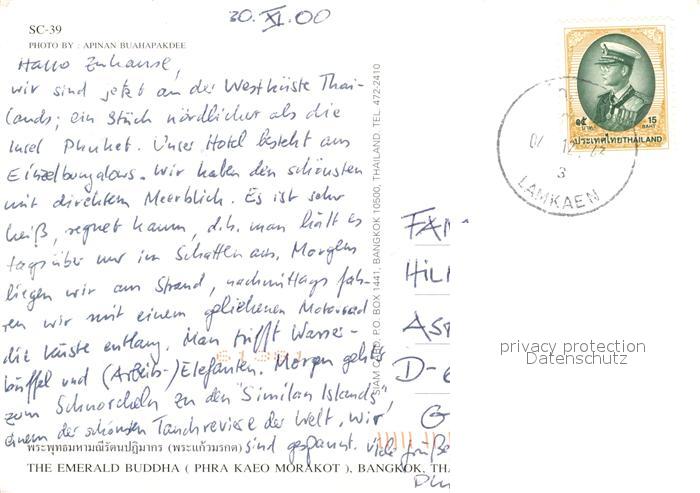 30. XI. 00
SC-39
PHOTO BY : APINAN BUAHAPAKDEE
Hallo Zuhause,
wir sind jetzt an der Westküste Thai-
lands; ein Stück nördlicher als die
Insel Phuket. Unser Hotel besteht aus
Einzelbungalows. Wir haben den schönsten
mit direktem Meerblick. Es ist sehr
heiß, regnet kaum, d.h. man hält es
tagsüber nur im Schatten aus. Morgens
liegen wir am Strand, nachmittags fah-
ren wir mit einem geliehenen Motorrad
die Küste entlang. Man trifft Wasser-
büffel und (Arbeits-)Elefanten. Morgen geht's
zum Schnorcheln zu den "Similan Islands",
einem der schönsten Tauchreviere der Welt, wir
sind gespannt. Viele Grüße
พระพุทธมหามณีรัตนปฏิมากร (พระแก้วมรกต)
THE EMERALD BUDDHA ( PHRA KAEO MORAKOT ), BANGKOK, THA
SIAM CARD. P.O. BOX 1441, BANGKOK 10500, THAILAND. TEL. 472-2410
FAM
HIL
AS
D-6
G
๑๕ บาท
15 BAHT
ประเทศไทย THAILAND
3
LAMKAEN
privacy protection
Datenschutz